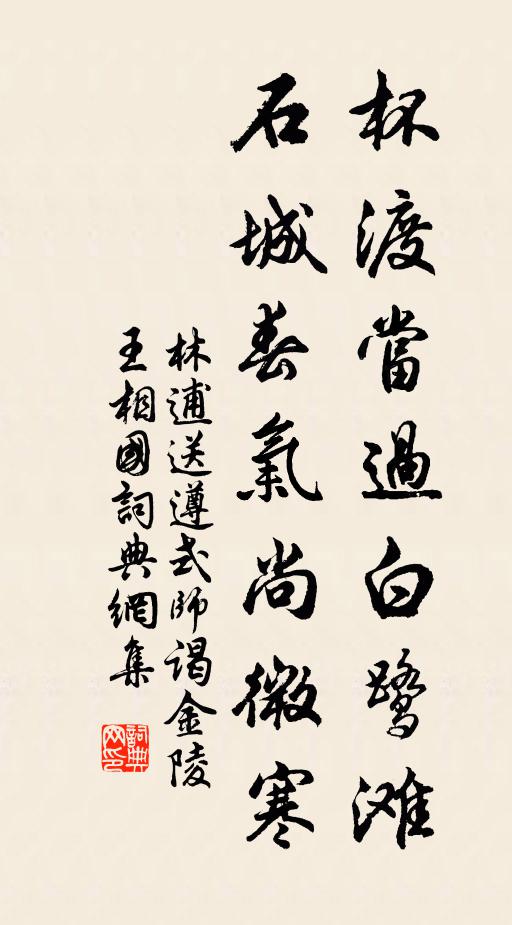 杯渡當過白鷺滩
石城春氣尚微寒
林逋送遵式師謁金陵
王相國詞典網集
詞典网印